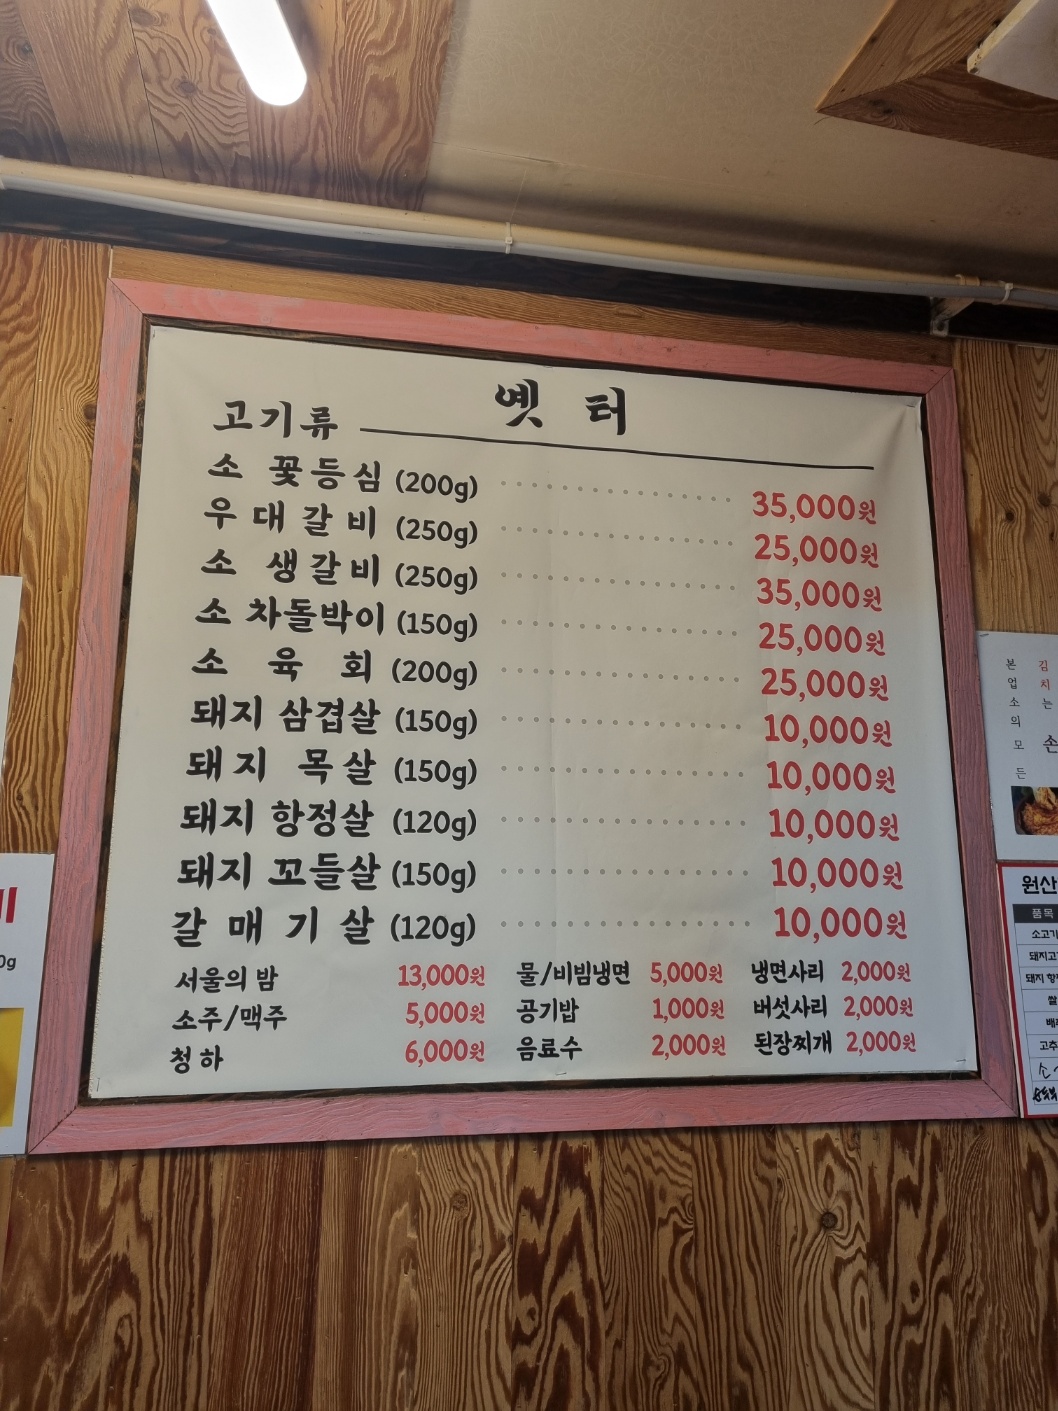 옛 터
고기류
소 꽃등심 (200g) 35,000원
우대갈비 (250g) 25,000원
소 생갈비 (250g) 35,000원
소 차돌박이 (150g) 25,000원
소 육 회 (200g) 25,000원
돼지 삼겹살 (150g) 10,000원
돼지 목살 (150g) 10,000원
돼지 항정살 (120g) 10,000원
돼지 꼬들살 (150g) 10,000원
갈매기살 (120g) 10,000원
서울의 밤 13,000원 물/비빔냉면 5,000원 냉면사리 2,000원
소주/맥주 5,000원 공기밥 1,000원 버섯사리 2,000원
청하 6,000원 음료수 2,000원 된장찌개 2,000원
본업소의 모든
김치는
손
원산
품목
소고기
돼지고
돼지 항
쌀
배추
고추
0g